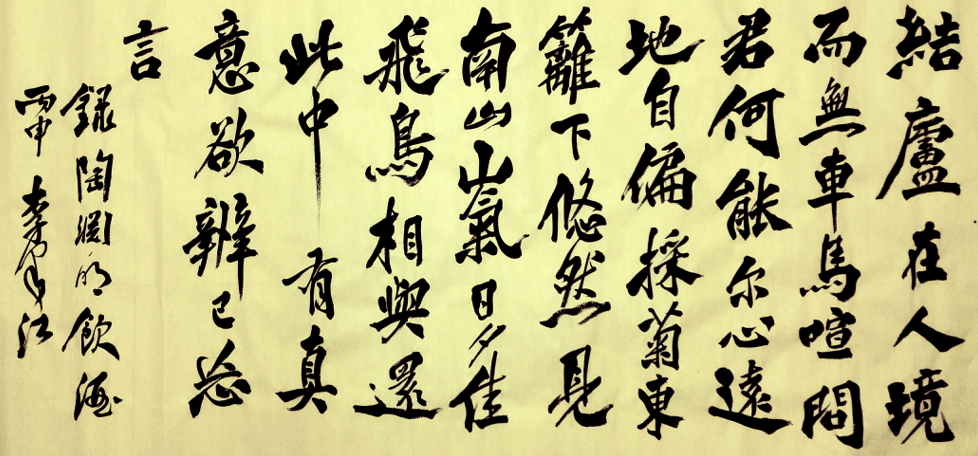 結廬在人境
而無車馬喧問
君何能尔心遠
地自偏採菊東
籬下悠然見
南山山氣日夕佳
飛鳥相與還
此中有真
意欲辨已忘
言
錄陶淵明飲酒
丙申李江